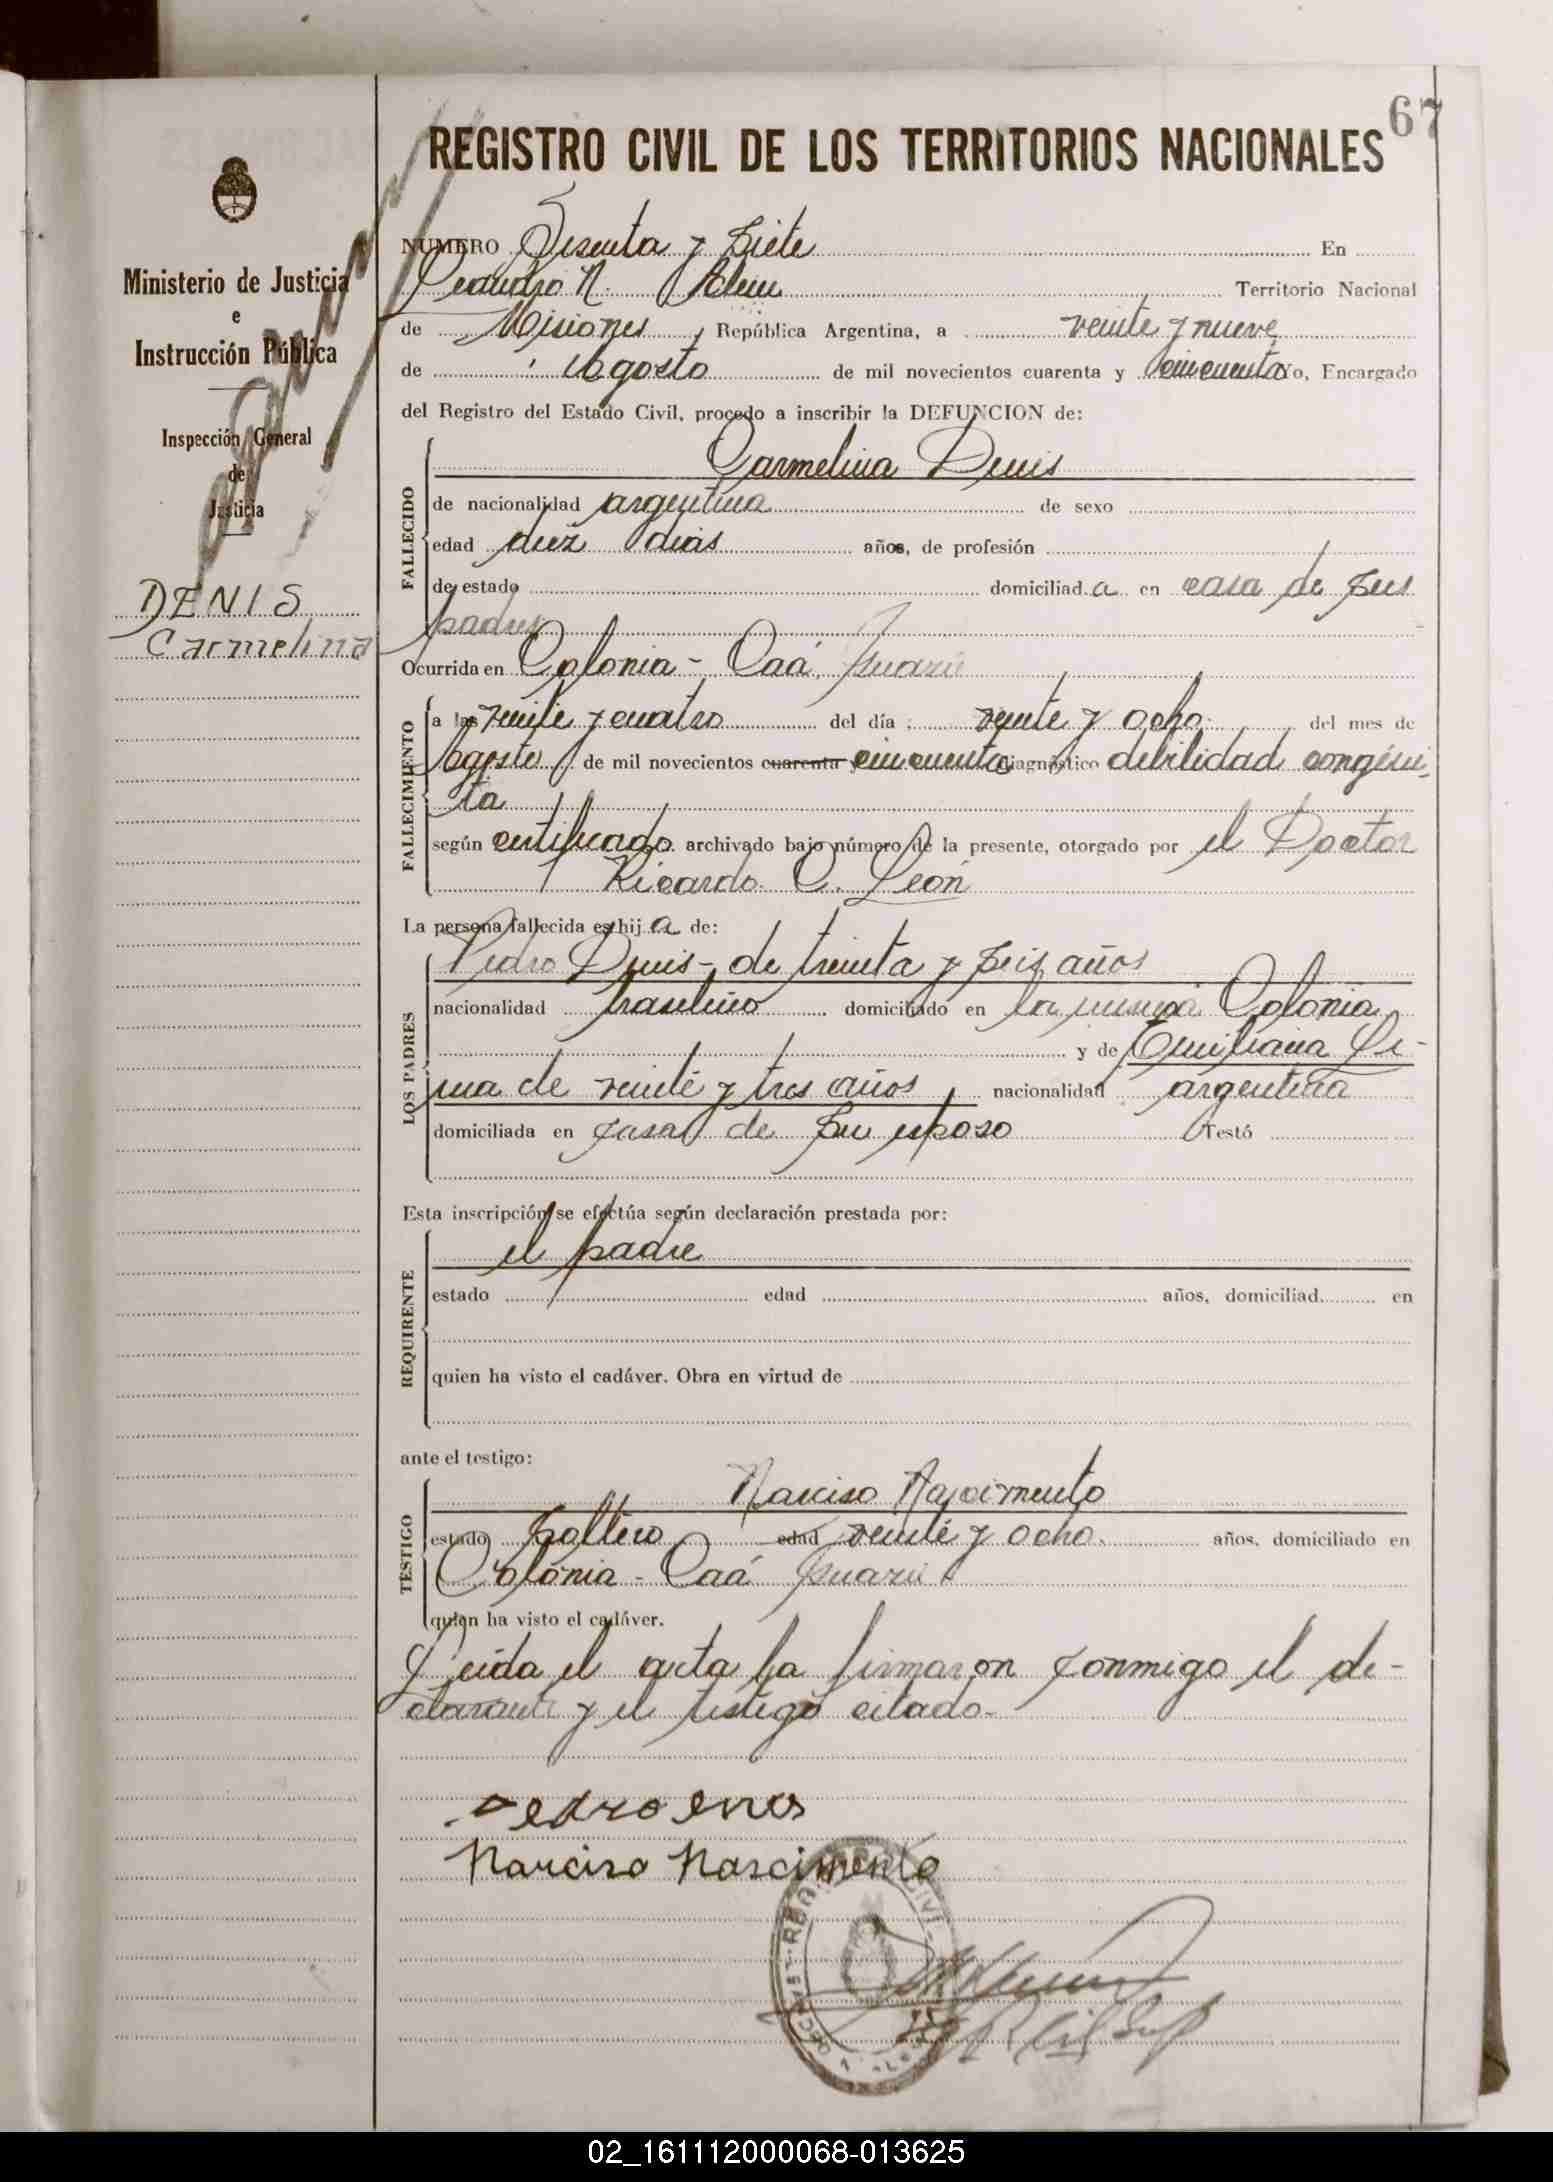 67
REGISTRO CIVIL DE LOS TERRITORIOS NACIONALES
Ministerio de Justicia
e
Instrucción Pública
Inspección General
de
Justicia
DENIS
Carmelina
NUMERO Sesenta y Siete En
Leandro N. Alem Territorio Nacional
de Misiones, República Argentina, a veinte y nueve
de Agosto de mil novecientos cuarenta y cincuenta Yo, Encargado
del Registro del Estado Civil, procedo a inscribir la DEFUNCION de:
FALLECIDO
Carmelina Denis
de nacionalidad argentina de sexo
edad diez dias años, de profesión
de estado domiciliada en casa de sus
padres
Ocurrida en Colonia - Caá Guazú
FALLECIMIENTO
a las veinte y cuatro del día veinte y ocho del mes de
Agosto de mil novecientos cuarenta y cincuenta diagnóstico debilidad congéni-
ta
según certificado archivado bajo número de la presente, otorgado por el Doctor
Ricardo C. León
La persona fallecida es hija de:
LOS PADRES
Pedro Denis - de treinta y seis años
nacionalidad brasileño domiciliado en la misma Colonia
y de Emiliana Li-
ma de veinte y tres años, nacionalidad argentina
domiciliada en casa de su esposo Testó
Esta inscripción se efectúa según declaración prestada por:
REQUIRENTE
el padre
estado edad años, domiciliad en
quien ha visto el cadáver. Obra en virtud de
ante el testigo:
TESTIGO
Narciso Nascimento
estado soltero edad veinte y ocho. años, domiciliado en
Colonia - Caá Guazú
quien ha visto el cadáver.
Leida el acta la firmaron conmigo el de-
clarante y el testigo citado.-
Pedro
Narciso Nascimento
02_161112000068-013625